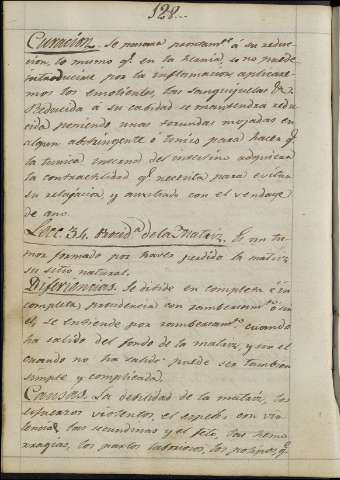 128...
Curacion. Se pasara prontam.te á su reduc-
cion, lo mismo q.e en la Hernia, si no puede
introducirse por la inflamacion, aplicare-
mos los emolientes, las sanguijuelas &.a
Reducida á su cabidad se mantendra redu-
cida poniendo unas torundas mojadas en
algun abstringente ó tonico para hacer q.e
la tunica interna del intestino adquiera
la contractilidad q.e necesita para evitar
su relajacion, y auxiliado con el vendage
de ano.
Lecc. 34. Procid.a de la Matriz. Es un tu-
mor formado por haver perdido la matriz
su sitio natural.
Diferiencias. Se dibide en completa é in-
completa, procidencia con
el, se entiende por cuando
ha salido del fondo de la matriz, y sin el
cuando no ha salido puede ser tambien
simple y complicada.
Causas. La devilidad de la matriz, los
esfuerzos violentos el con vio-
lencia las secundinas y el feto, las hemo-
rragias, los partos laboriosos, los polipos, q.e